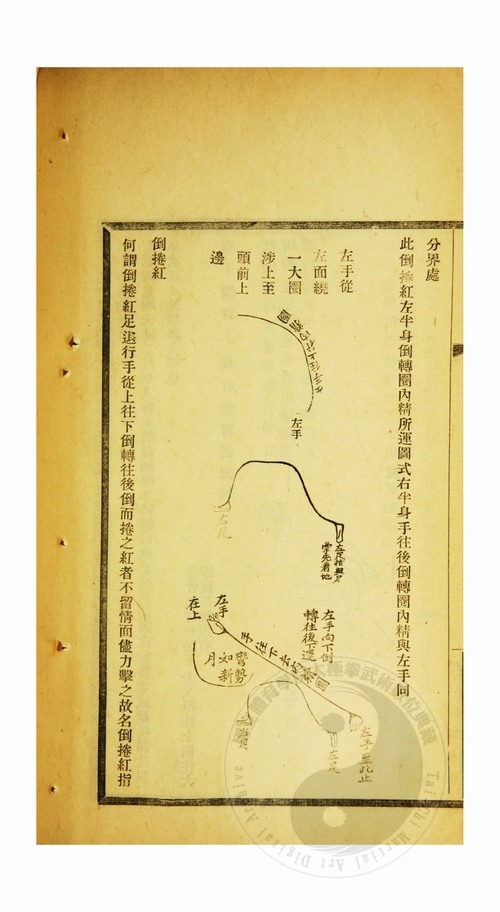 分界處
此倒捲紅左半身倒轉圈內精所運圖式右半身手往後倒轉圈內精與左手同
左手從
左面繞
一大圈
涉上至
頭前上
邊
左手
右足
左手向下倒
左手
在上
手往下去
彎勢
如新
月
左手至此止
左足
右足
倒捲紅
何謂倒捲紅足退行手從上往下倒轉往後倒而捲之紅者不留情面儘力擊之故名倒捲紅指
Taichi Martial Art Digital